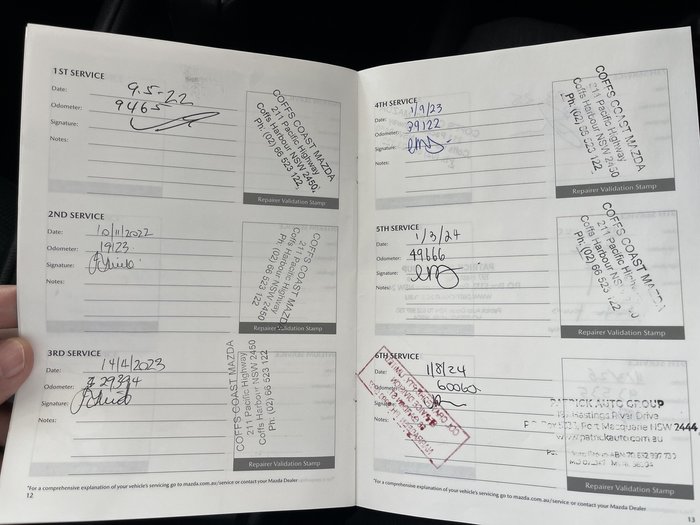 1ST SERVICE
Date: 9.5-22
Odometer: 9465
Signature:
Notes:
COFFS COAST MAZDA
211 Pacific Highway
Coffs Harbour NSW 2450.
Ph: (02) 66 523 122
Repairer Validation Stamp
2ND SERVICE
Date: 10/11/2022
Odometer: 19123
Signature:
Notes:
COFFS COAST MAZDA
211 Pacific Highway
Coffs Harbour NSW 2450
Ph: (02) 66 523 122
Repairer Validation Stamp
3RD SERVICE
Date: 14/4/2023
Odometer: 29394
Signature:
Notes:
COFFS COAST MAZDA
211 Pacific Highway
Coffs Harbour NSW 2450
Ph: (02) 66 523 122
Repairer Validation Stamp
*For a comprehensive explanation of your vehicle's servicing go to mazda.com.au/service or contact your Mazda Dealer
12
4TH SERVICE
Date: 1/9/23
Odometer: 39122
Signature:
Notes:
COFFS COAST MAZDA
211 Pacific Highway
Coffs Harbour NSW 2450
Ph: (02) 66 523 122
Repairer Validation Stamp
5TH SERVICE
Date: 1/3/24
Odometer: 49666
Signature:
Notes:
COFFS COAST MAZDA
211 Pacific Highway
Coffs Harbour NSW
Ph: (02) 66 523
Repairer Validation Stamp
6TH SERVICE
Date: 1/8/24
Odometer: 60060
Signature:
Notes:
PATRICK AUTO GROUP
Hastings River Drive
Port Macquarie NSW 2444
www.patrickauto.com.au
*For a comprehensive explanation of your vehicle's servicing go to mazda.com.au/service or contact your Mazda Dealer
13